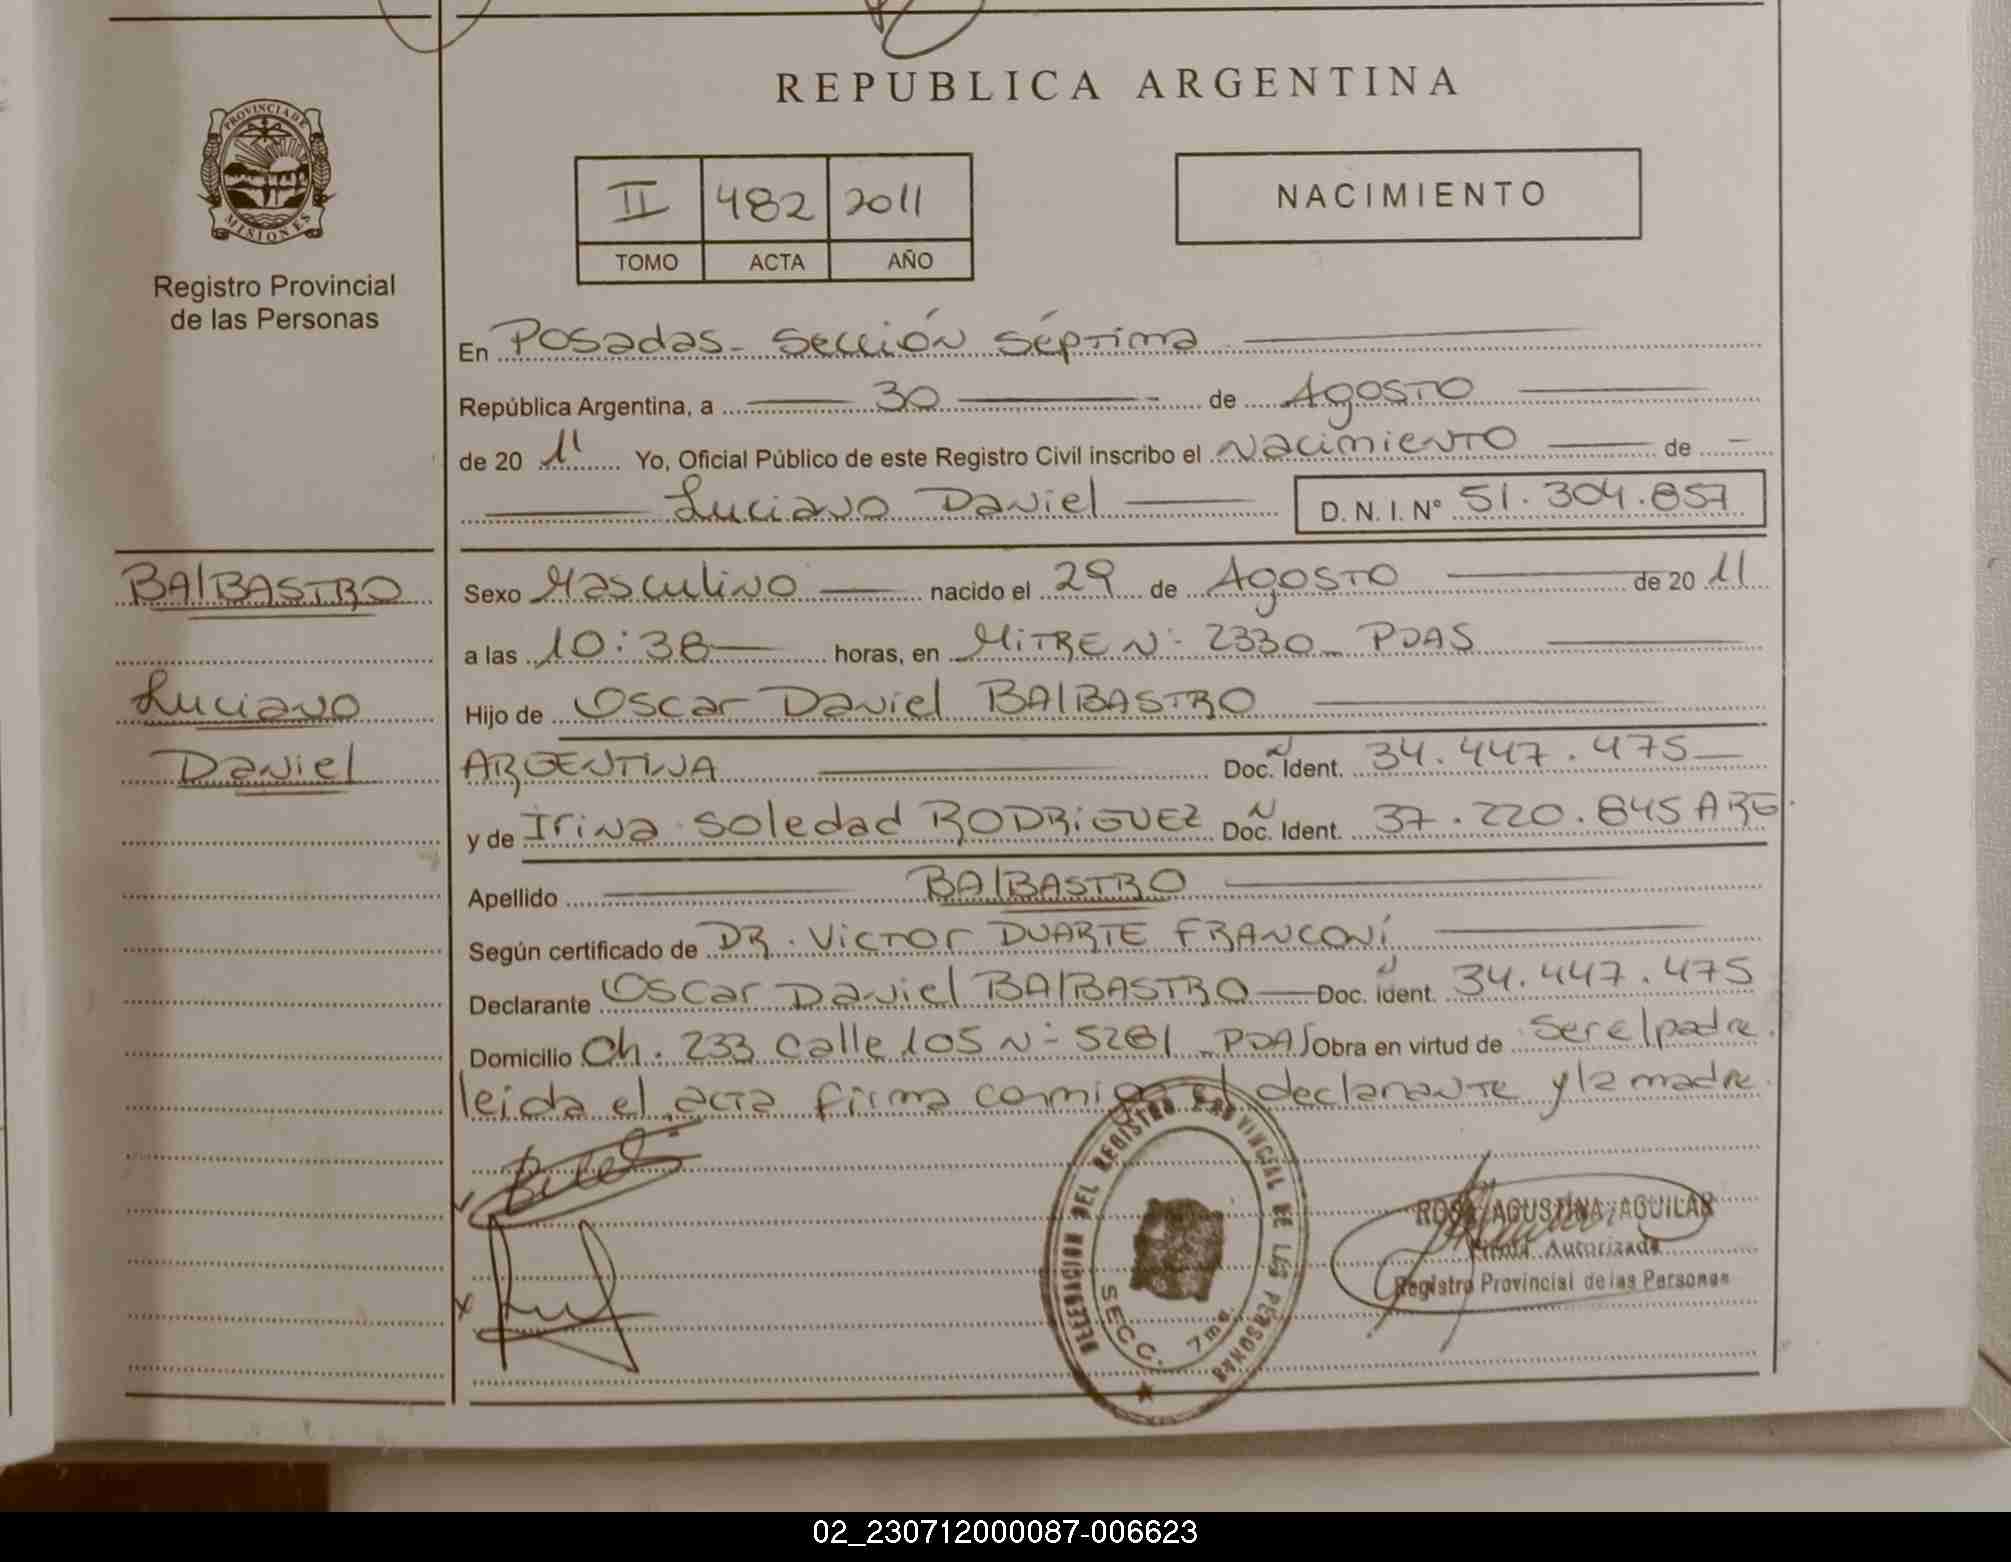 REPUBLICA ARGENTINA
PROVINCIA DE
MISIONES
Registro Provincial
de las Personas
II 482 2011
TOMO ACTA AÑO
NACIMIENTO
En Posadas - Sección Séptima
República Argentina, a 30 de Agosto
de 20 11 Yo, Oficial Público de este Registro Civil inscribo el Nacimiento de
Luciano Daniel D. N. I. Nº 51.304.857
BAlBASTRO
Luciano
Daniel
Sexo Masculino nacido el 29 de Agosto de 20 11
a las 10:38 horas, en MiTRE N- 2330 - PDAS
Hijo de Oscar Daniel BAlBASTRO
ARGENTINA Doc. Ident. 34.447.475
y de Irina Soledad RODRiGUEZ Doc. Ident. 37.220.845 ARG.
Apellido BAlBASTRO
Según certificado de DR. VicTor DUARTE FRANCONí
Declarante Oscar Daniel BAlBASTRO Doc. Ident. 34.447.475
Domicilio Ch. 233 Calle 105 N- 5281 - PDAS Obra en virtud de ser el padre.
leida el acta firma conmigo el declarante y la madre.
DELEGACION DEL REGISTRO PROVINCIAL DE LAS PERSONAS
SECC. 7ma.
ROSA AGUSTINA AGUILAR
Firma Autorizada
Registro Provincial de las Personas
02_230712000087-006623